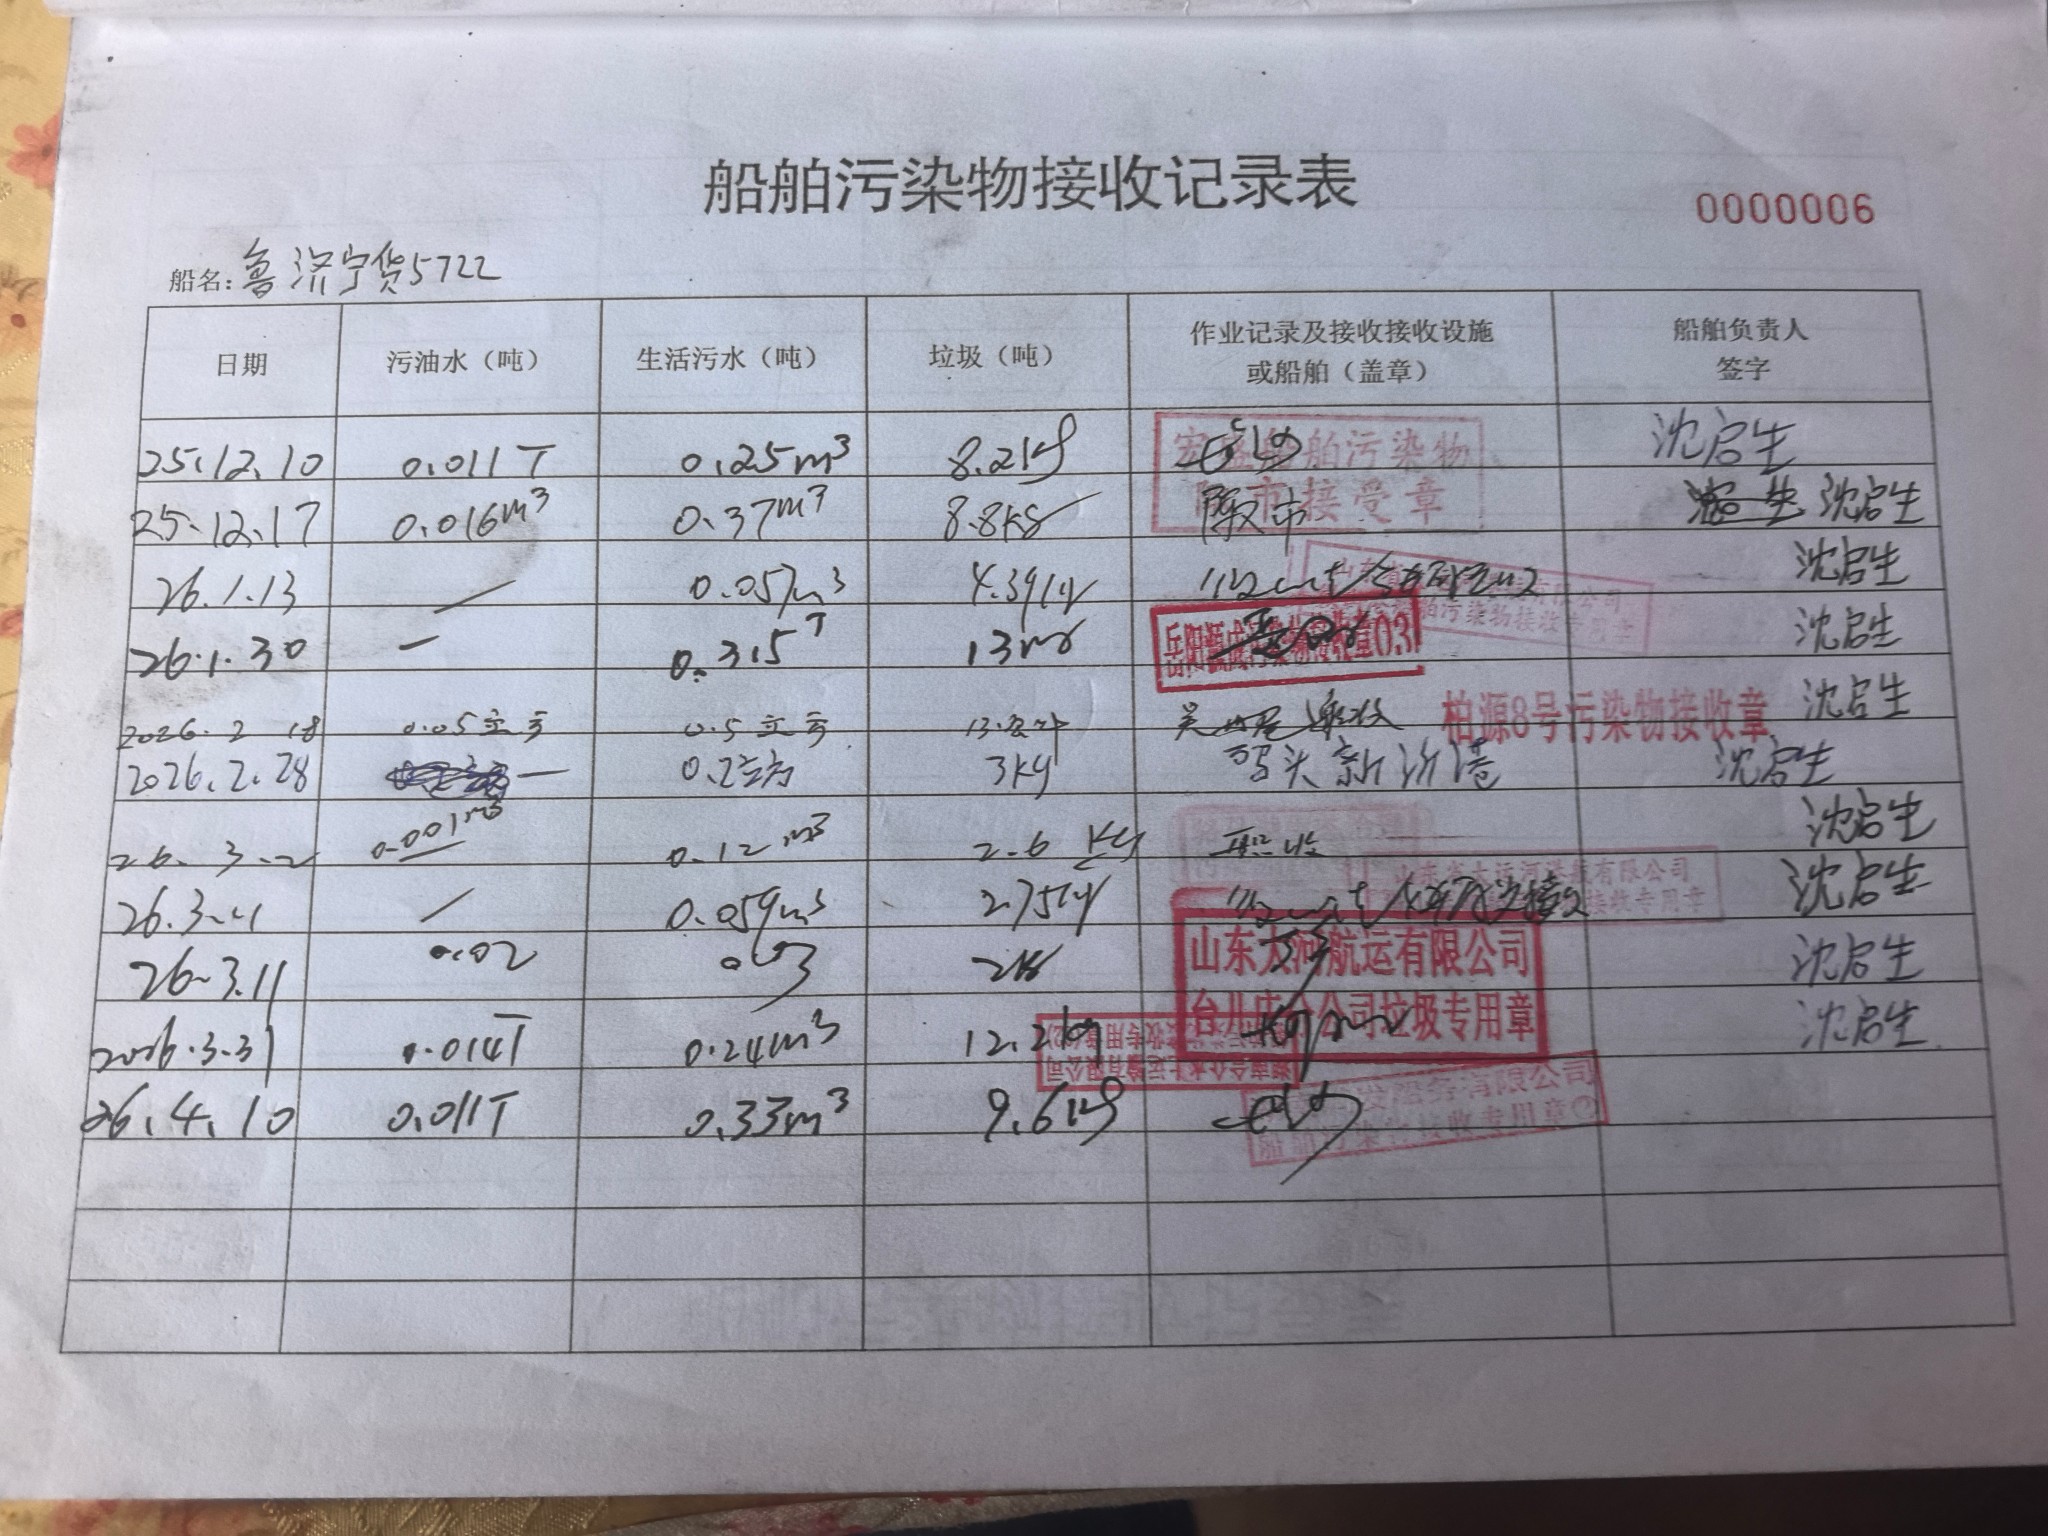 船舶污染物接收记录表
0000006
船名：鲁济宁货5722
日期 污油水（吨） 生活污水（吨） 垃圾（吨） 作业记录及接收接收设施或船舶（盖章） 船舶负责人签字
25.12.10 0.011T 0.25m³ 8.2kg 宏盛船舶污染物 沈启生
25.12.17 0.016m³ 0.37m³ 8.8kg 市接受章 沈启生
26.1.13 / 0.057m³ 4.39kg 沈启生
26.1.30 — 0.315T 13 沈启生
2026.2.18 0.05立方 0.5立方 13公斤 柏源8号污染物接收章 沈启生
2026.2.28 — 0.2立方 3kg 码头新沂港 沈启生
26.3.2 0.001m³ 0.12m³ 2.6kg 沈启生
26.3.4 / 0.059m³ 2.75kg 山东省大运河港航有限公司 接收专用章 沈启生
26.3.11 0.02 0.03 山东大河航运有限公司 沈启生
台儿庄分公司垃圾专用章
2026.3.31 0.014T 0.24m³ 12.2kg 沈启生
26.4.10 0.011T 0.33m³ 9.6kg 服务有限公司
船舶污染物接收专用章